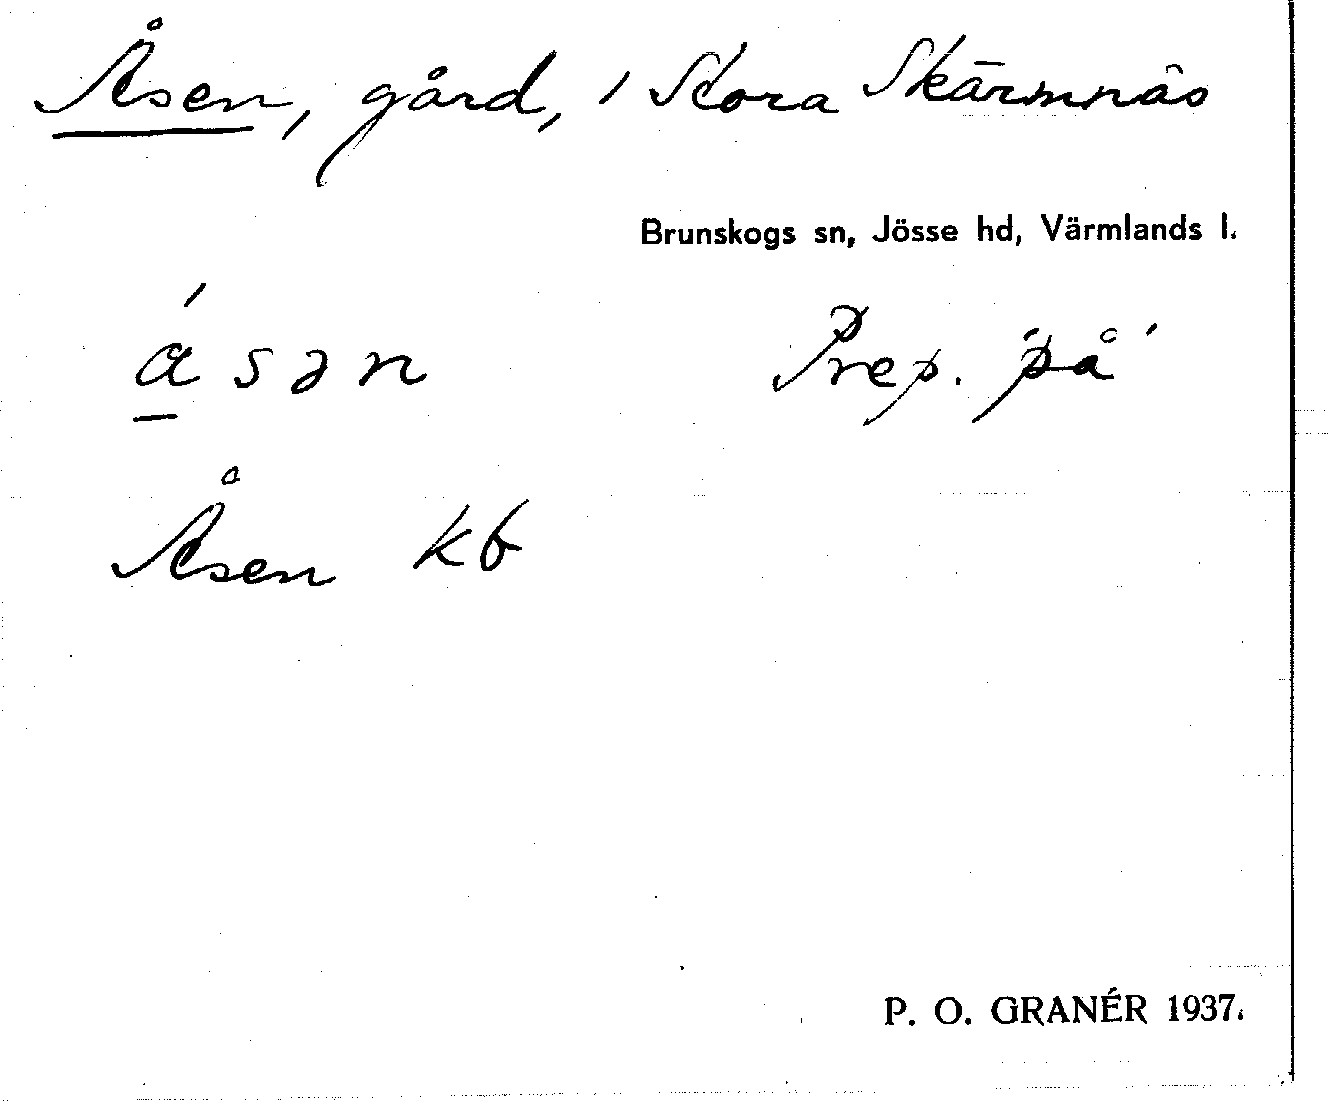 Åsen, gård, i Stora Skärmnäs
Brunskogs sn, Jösse hd, Värmlands l.
á̱sən Prep. "på"
Åsen kb
P. O. GRANÉR 1937.